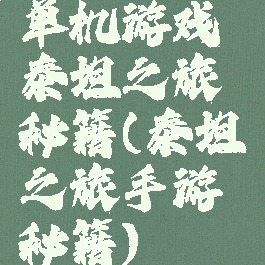 单机游戏
泰坦之旅
秘籍(泰坦
之旅手游
秘籍)